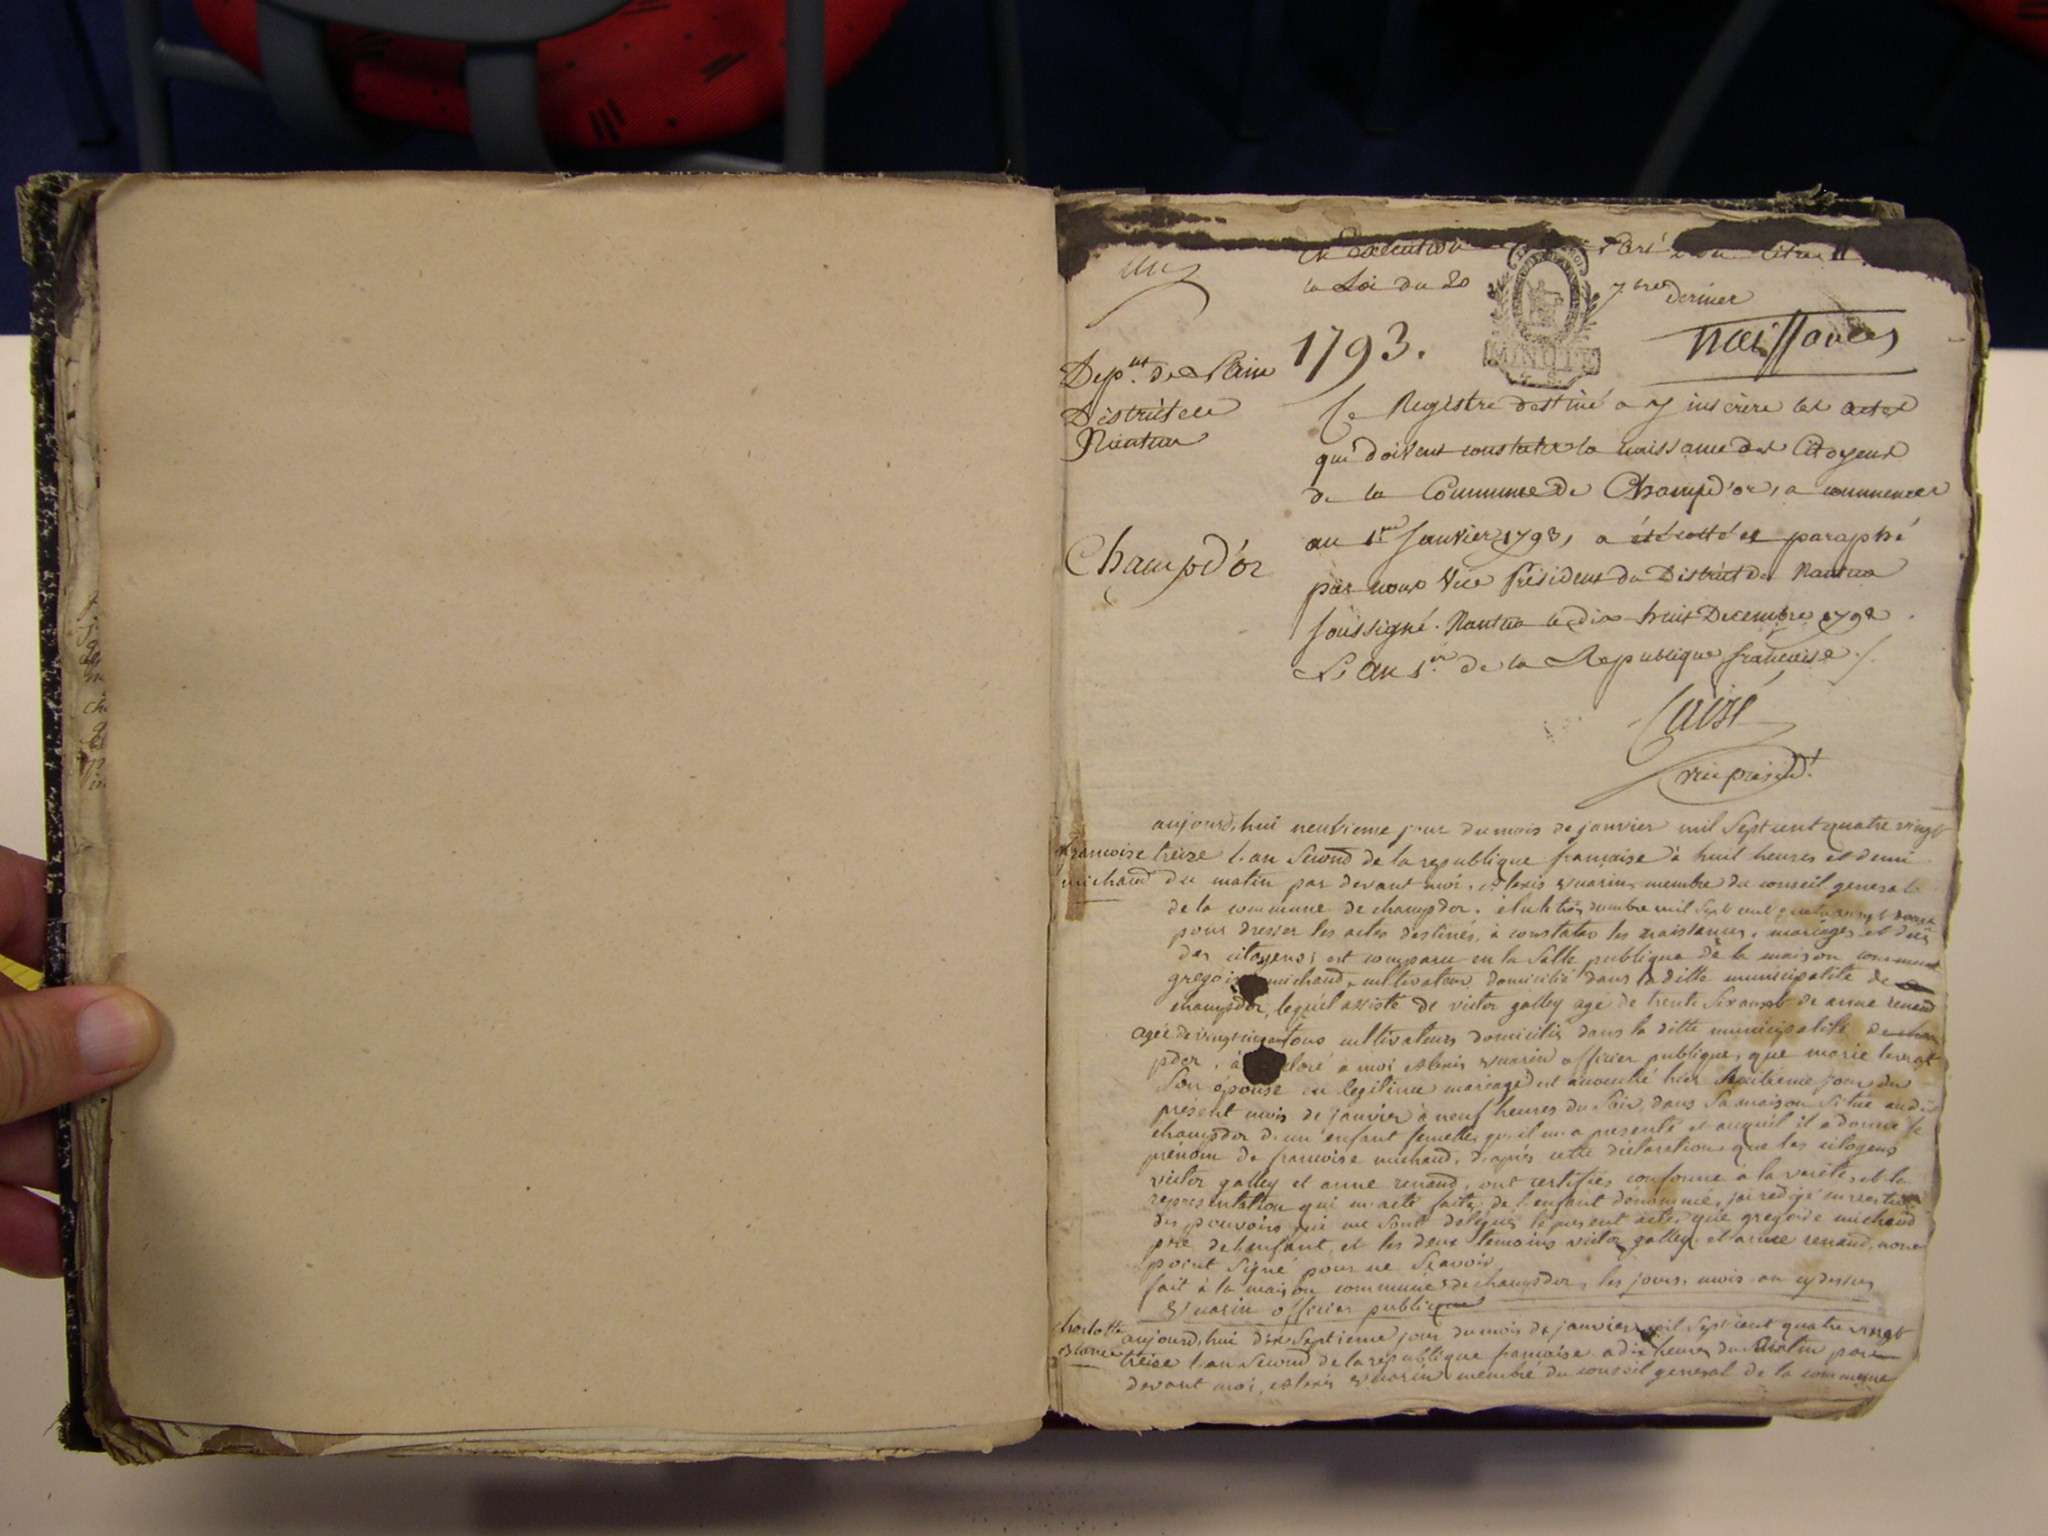 un
en Execution
la Loi du 20 7bre dernier
MINUTE
1793.
naissances
Dep.nt de Lain
District de
Nantua
Champd'or
Le Registre destiné a y inscrire les actes
qui doivent constater la naissance des Citoyens
de la Commune de Champd'or, a commencer
au 1.er Janvier 1793, a été cotté et paraphé
par nous Vice Président du District de Nantua
soussigné. Nantua le dix huit Decembre 1792
L'an 1.er de la Republique françoise ./.
vice présid.t
aujourd,hui neuvieme jour du mois de janvier mil Sept cent quatre vingt
francoise
michaud
treize l.an Second de la republique francaise à huit heures et demi
du matin par devant moi, alexis membre du conseil general
de la commune de champdor. élu le mil Sept cent quatre vingt douze
pour dresser les actes destinés, à constater les naissances, mariages et
des citoyens; est comparu en la Salle publique de la maison commune
michaud, cultivateur domicilié dans la ditte municipalité de
champdor, lequel assisté de victor galley agé de trente Six ans et de anne renaud
agée de vingt cinq ans tous cultivateurs domiciliés dans la ditte municipalité de cham
pdor, à moi alexis officier publique, que marie
Son épouse en legitime mariage est accouché hier huitieme jour du
présent mois de janvier à neuf heures du Soir, dans Sa maison Situé
champdor d.un enfant femelle, qu,il m,a presenté et auquel il a donné le
prénom de francoise michaud, d,après cette déclaration, que les citoyens
victor galley et anne renaud, ont certifiés conforme à la verité, et la
representation qui m,a eté faite, de l,enfant dénommé, j,ai redigé en vertu
des pouvoirs qui me Sont delegués le present acte, que gregoire michaud
père de l,enfant, et les deux temoins victor galley, et anne renaud, nont
point Signé pour ne Scavoir
fait à la maison commune de champdor, les jours, mois an cydessus
officier publique
charlotte
aujourd,hui dix Septieme jour du mois de janvier mil Sept cent quatre vingt
treize l.an Second de la république francaise a dix heures du matin par
devant moi, alexis membre du conseil general de la commune